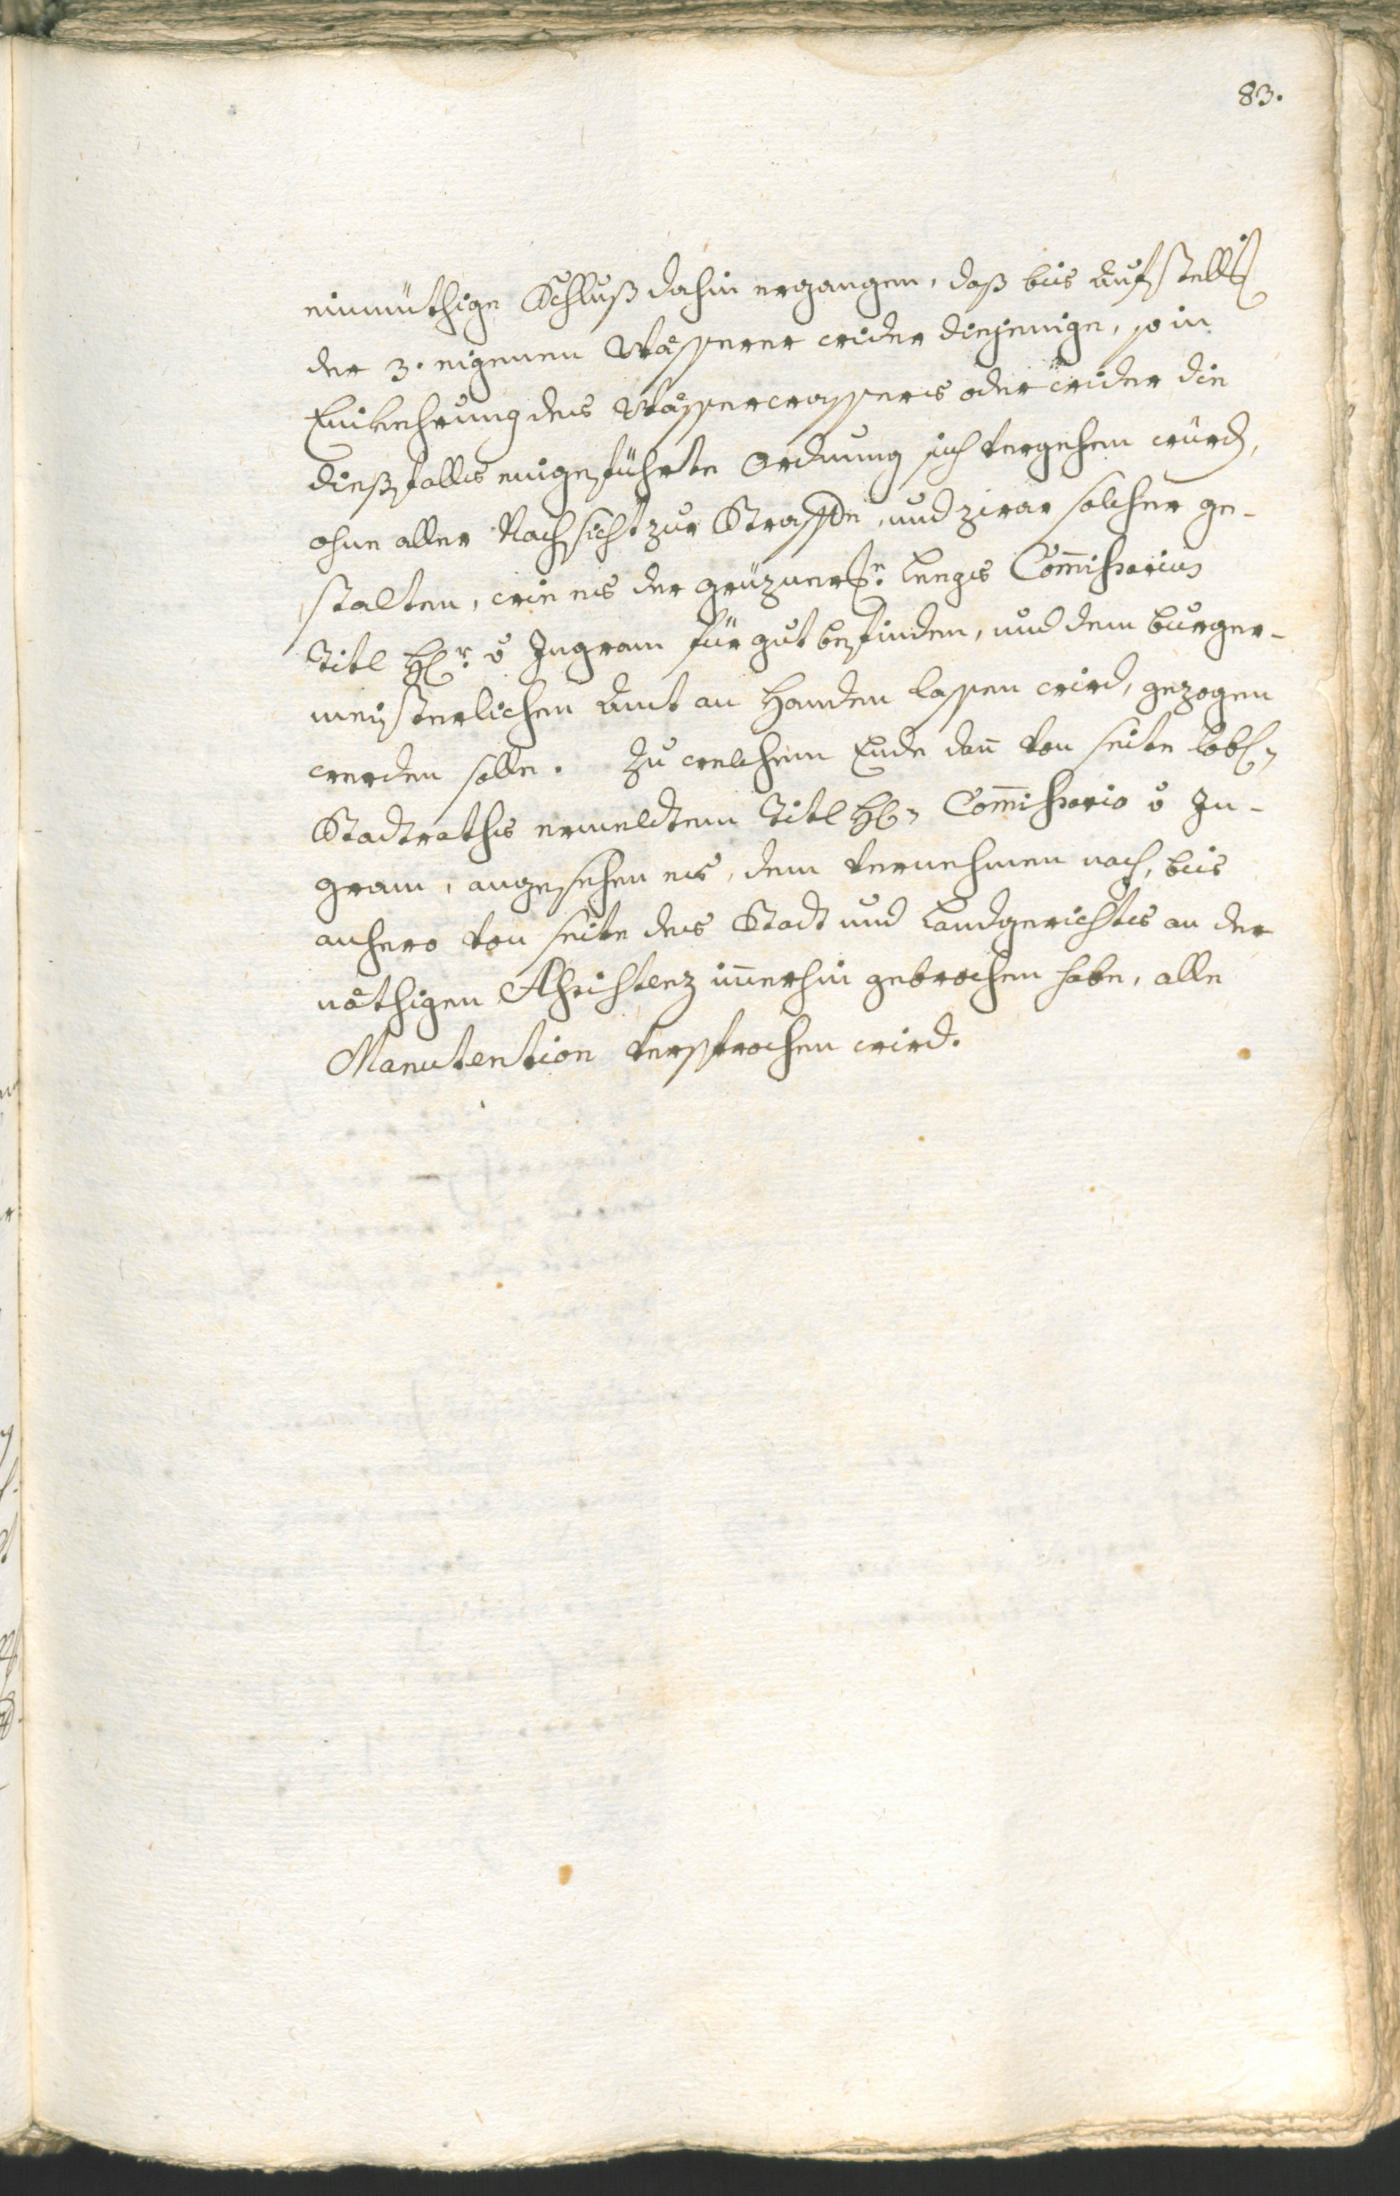 83.
einmüthige Schluß dahin ergangen, daß bis Aufstell[un]g
der 3. eigenen Wasserer wider diejenige, so in
Einkehrung des Wässerwassers oder wider die
dießfalls eingeführte Ordnung sich vergehen würd[en],
ohne aller Nachsicht zur Straffe, und zwar solcher ge-
stalten, wie es der Commissarius
Titl H[er]r v Ingram für gut befinden, und dem burger-
meisterlichen Amt an Handen lassen wird, gezogen
werden solle. Zu welchem Ende dan̄ von seite löbl:
Stadtraths ermeldtem Titl H: Com̄issario v In-
gram, angesehen es, dem Vernehmen nach, bis
anhero von seite des Stadt und Landgerichts an der
nöthigen Assistenz im̄erhin gebrochen habe, alle
Manutention versprochen wird.